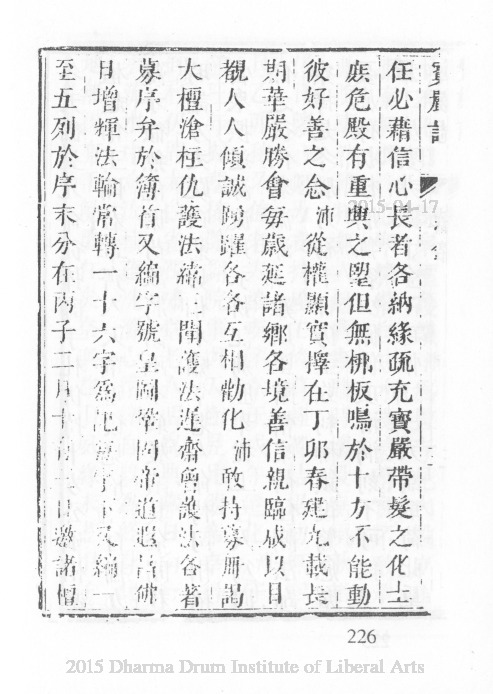 寶嚴記
任必藉信心長者各納緣疏充寶嚴帶髮之化士
庶危殿有重興之望但無梆板鳴於十方不能動
彼好善之念沛從權顯實擇在丁卯春建九載長
期華嚴勝會每歲延諸鄉各境善信親臨咸以目
覩人人傾誠踴躍各各互相勸化沛敢持募冊謁
大檀滄柱仇護法繡 聞護法蓮齋曾護法各著
募序弁於簿首又編字號皇圖鞏固帝道遐昌佛
日增輝法輪常轉一十六字爲 又編一
至五列於序末分在丙子二月十 日邀諸檀
2015-04-17
226
2015 Dharma Drum Institute of Liberal Arts